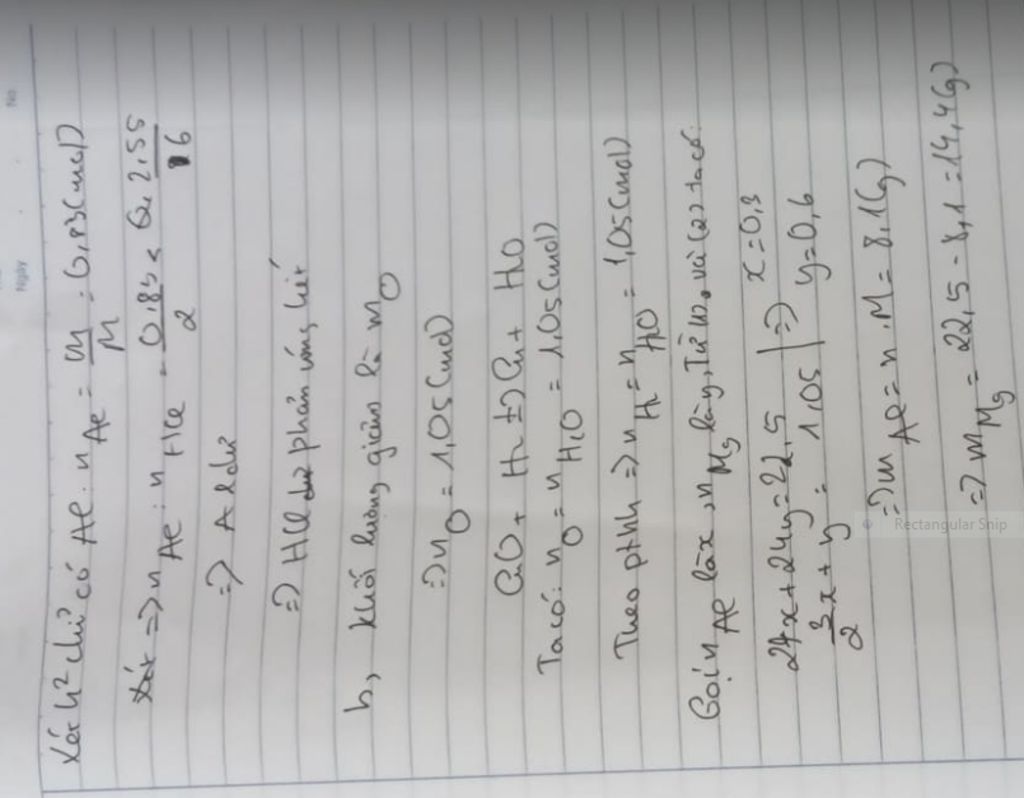 No
Ngày
Xét h² chỉ có Al: n Al = m/M = 0,83 (mol)
Xét => n Al : n HCl = 0,83/2 < 2,55/6
=> Al dư
=> HCl phản ứng hết
b, khối lượng giảm là m O
=> n O = 1,05 (mol)
CuO + H₂ t°→ Cu + H₂O
Ta có: n O = n H₂O = 1,05 (mol)
Theo pthh => n H₂ = n H₂O = 1,05 (mol)
Gọi n Al là x, n Mg là y, Từ (1) và (2) ta có:
27x + 24y = 22,5 | => x = 0,3
3/2 x + y = 1,05 | y = 0,6
=> m Al = n.M = 8,1 (g)
=> m Mg = 22,5 - 8,1 = 14,4 (g)
Rectangular Snip